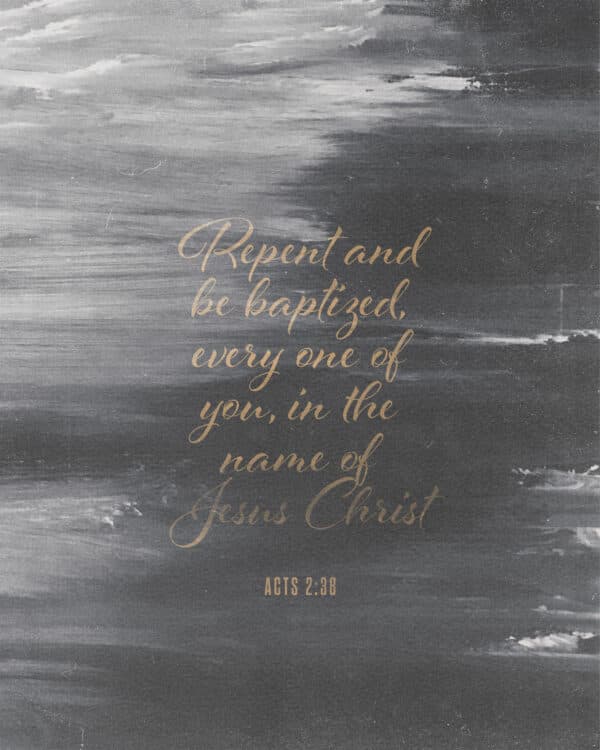 Repent and
be baptized,
every one of
you, in the
name of
Jesus Christ
ACTS 2:38